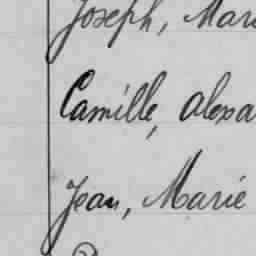 Joseph, Mari
Camille, alexa
Jean, Marie